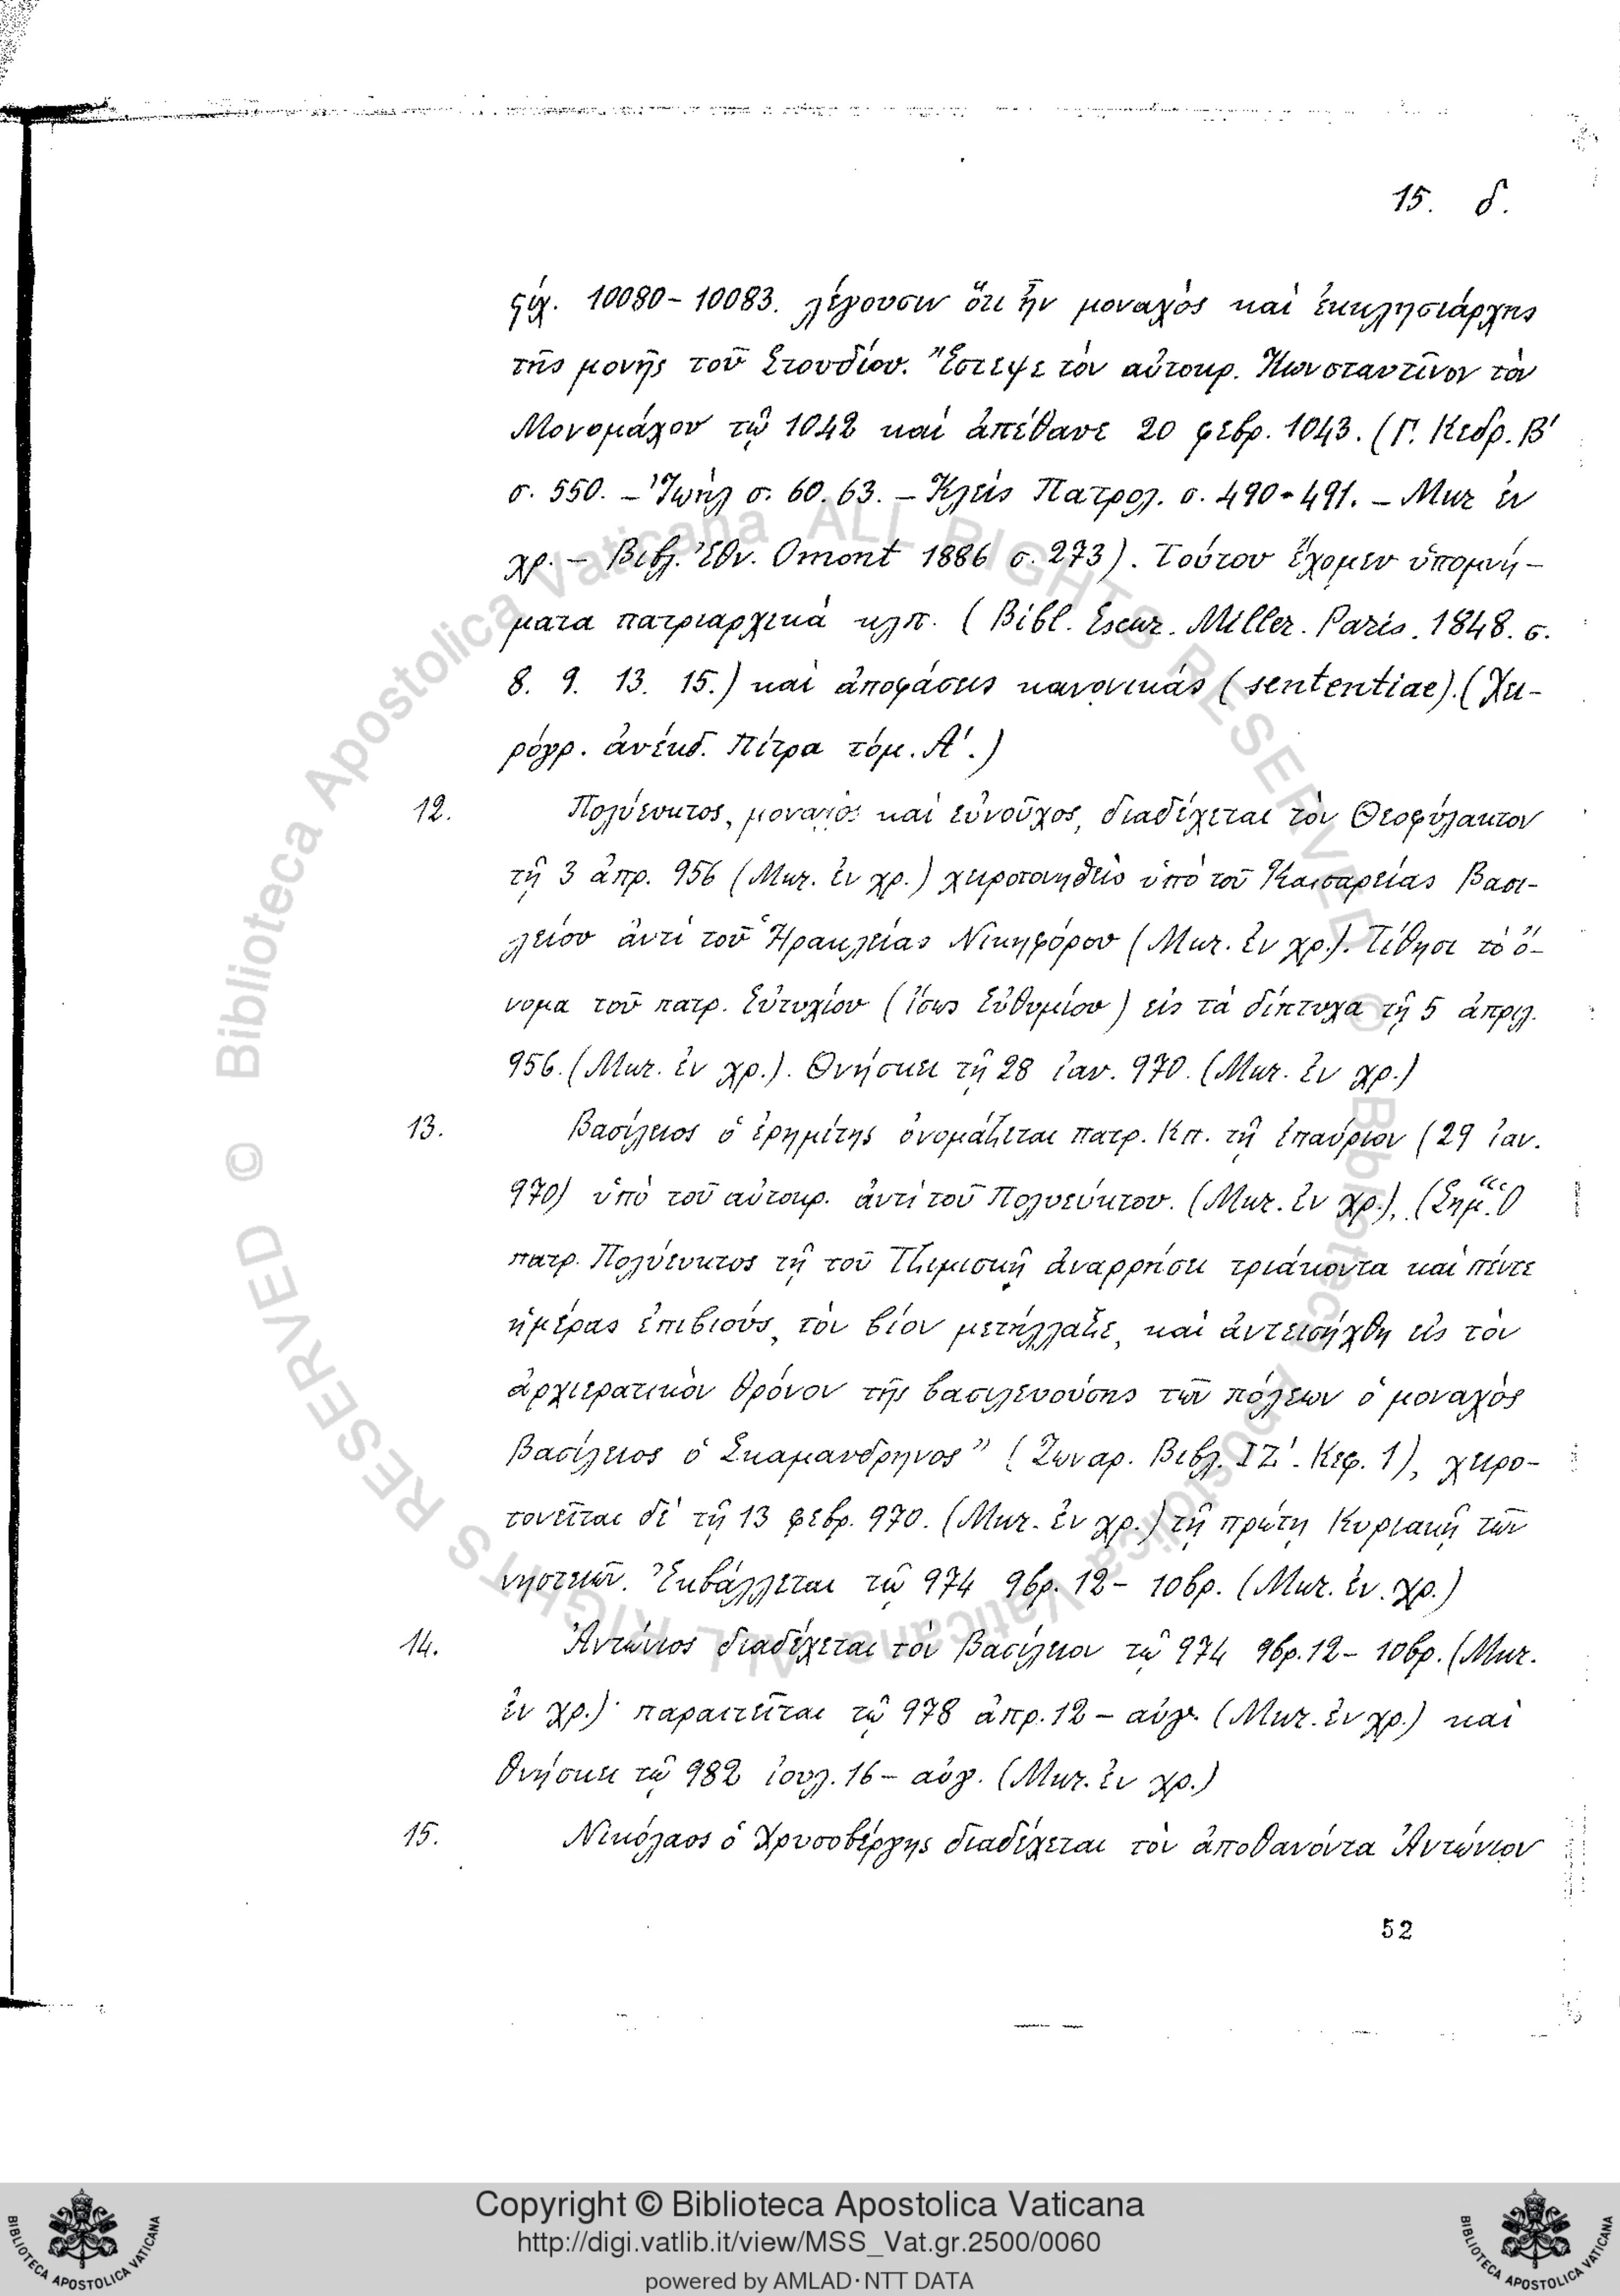 15. δ.
ςίχ. 10080-10083. λέγουσιν ὅτι ἦν μοναχὸς καὶ ἐκκλησιάρχης
τῆς μονῆς τοῦ Στουδίου. Ἔστεψε τὸν αὐτοκρ. Κωνσταντῖνον τὸν
Μονομάχον τῷ 1042 καὶ ἀπέθανε 20 φεβρ. 1043. (Γ. Κεδρ. Β'
σ. 550. – Ἰωὴλ σ. 60. 63. – Κλεὶς Πατρολ. σ. 490-491. – Μυτ ἐν
χρ. – Βιβλ. Ἐθν. Omont 1886 σ. 273). Τούτου ἔχομεν ὑπομνή-
ματα πατριαρχικὰ κλπ. (Bibl. Escur. Miller. Paris. 1848. σ.
8. 9. 13. 15.) καὶ ἀποφάσεις κανονικάς (sententiae). (Χει-
ρόγρ. ἀνέκδ. Πίτρα τόμ. Α'.)
12. Πολύευκτος, μοναχὸς καὶ εὐνοῦχος, διαδέχεται τὸν Θεοφύλακτον
τῇ 3 ἀπρ. 956 (Μυτ. ἐν χρ.) χειροτονηθεὶς ὑπὸ τοῦ Καισαρείας Βασι-
λείου ἀντὶ τοῦ Ἡρακλείας Νικηφόρου (Μυτ. ἐν χρ.). Τίθησι τὸ ὄ-
νομα τοῦ πατρ. Εὐτυχίου (ἴσως Εὐθυμίου) εἰς τὰ δίπτυχα τῇ 5 ἀπριλ.
956. (Μυτ. ἐν χρ.). Θνήσκει τῇ 28 ἰαν. 970. (Μυτ. ἐν χρ.)
13. Βασίλειος ὁ ἐρημίτης ὀνομάζεται πατρ. Κπ. τῇ ἐπαύριον (29 ἰαν.
970) ὑπὸ τοῦ αὐτοκρ. ἀντὶ τοῦ Πολυεύκτου. (Μυτ. ἐν χρ.), (Σημ. "Ὁ
πατρ. Πολύευκτος τῇ τοῦ Τζιμισκῆ ἀναρρήσει τριάκοντα καὶ πέντε
ἡμέρας ἐπιβιούς, τὸν βίον μετήλλαξε, καὶ ἀντεισήχθη εἰς τὸν
ἀρχιερατικὸν θρόνον τῆς βασιλευούσης τῶν πόλεων ὁ μοναχὸς
Βασίλειος ὁ Σκαμανδρηνος" (Ζωναρ. Βιβλ. ΙΖ'. Κεφ. 1), χειρο-
τονεῖται δὲ τῇ 13 φεβρ. 970. (Μυτ. ἐν χρ.) τῇ πρώτῃ Κυριακῇ τῶν
νηστειῶν. Ἐκβάλλεται τῷ 974 9βρ. 12 – 10βρ. (Μυτ. ἐν. χρ.)
14. Ἀντώνιος διαδέχεται τὸν Βασίλειον τῷ 974 9βρ. 12 – 10βρ. (Μυτ.
ἐν χρ.)· παραιτεῖται τῷ 978 ἀπρ. 12 – αὐγ. (Μυτ. ἐν χρ.) καὶ
θνήσκει τῷ 982 ἰουλ. 16 – αὐγ. (Μυτ. ἐν χρ.)
15. Νικόλαος ὁ Χρυσοβέργης διαδέχεται τὸν ἀποθανόντα Ἀντώνιον
52
© Biblioteca Apostolica Vaticana ALL RIGHTS RESERVED © Biblioteca Apostolica Vaticana ALL RIGHTS RESERVED
BIBLIOTECA APOSTOLICA VATICANA
Copyright © Biblioteca Apostolica Vaticana
http://digi.vatlib.it/view/MSS_Vat.gr.2500/0060
powered by AMLAD·NTT DATA
BIBLIOTECA APOSTOLICA VATICANA